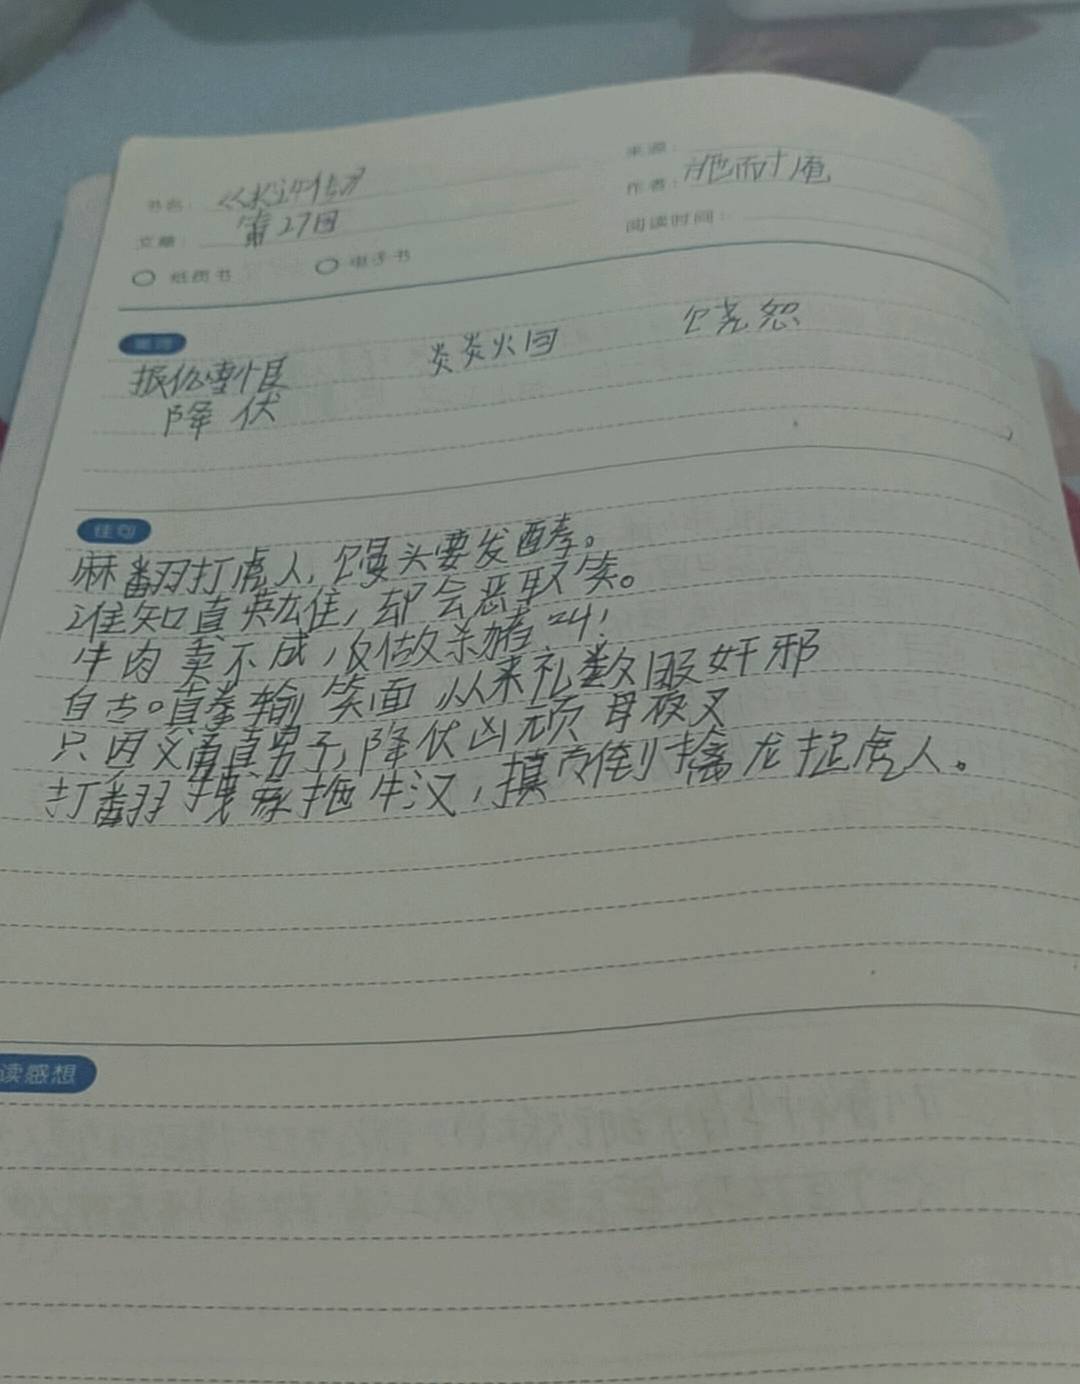 书名： 《水浒传》
来源：
文章： 第27回
作者： 施耐庵
阅读时间：
纸质书
电子书
炎炎火 饶恕
降伏
佳句
麻翻打虎人，馒头要发酵。
谁知真英雄，却会恶取笑。
牛肉卖不成，反做杀猪叫！
自古。真拳输笑面 从来礼数服奸邪
只因义勇真男子，降伏凶顽母夜叉
打翻拽象拖牛汉，攧倒擒龙捉虎人。
读感想